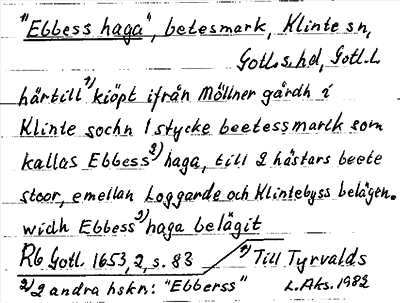 "Ebbess haga", betesmark, Klinte sn,
Gotl. s. hd, Gotl. L
härtill 1) kiöpt ifrån Möllner gårdh i
Klinte sochn 1 stycke beetessmarck som
kallas Ebbess 2) haga, till 2 hästars beete
stoor, emellan Loggarde och Klintebyss belägen.
widh Ebbess 2) haga belägit
Rb Gotl. 1653, 2, s. 83
1) Till Tyrvalds
2) 2 andra hskn: "Ebberss"
L. Aks. 1982